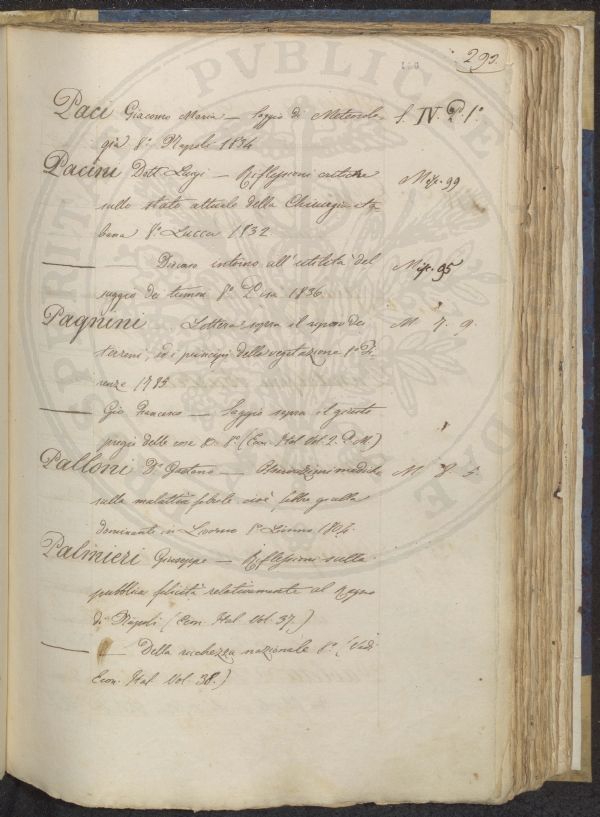 293.
Paci Giacomo Maria — Saggio di Meteorolo- S. IV. P. 1º
gia 8º Napoli 1834
Pacini Dott. Luigi — Riflessioni critiche Mis. 99
sullo stato attuale della Chirurgia
8º Lucca 1832
Discorso intorno all'utilità del Mis. 95
suggio dei tumori 8º Pisa 1836
Pagnini Lettera sopra il riposo dei M 7. 9.
terreni, ed i principi della vegetazione 8º Fi-
renze 1785
Gio Francesco — Saggio sopra il giusto
pregio delle cose 8º (Econ. Ital. Vol. 2. P. M.)
Palloni Dr. Gaetano — Osservazioni mediche M 8.
sulla malattia febrile cioè febbre gialla
dominante in Livorno 8º Livorno 1804
Palmieri Giuseppe — Riflessioni sulla
pubblica felicità relativamente al Regno
di Napoli (Econ. Ital. Vol. 37.)
Della ricchezza nazionale 8º (Vedi
Econ. Ital. Vol. 38.)